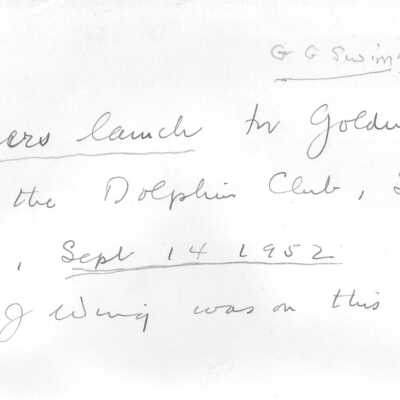 G G Swim
ers launch for Golde
the Dolphin Club, S
, Sept 14 1952
J Wing was on this